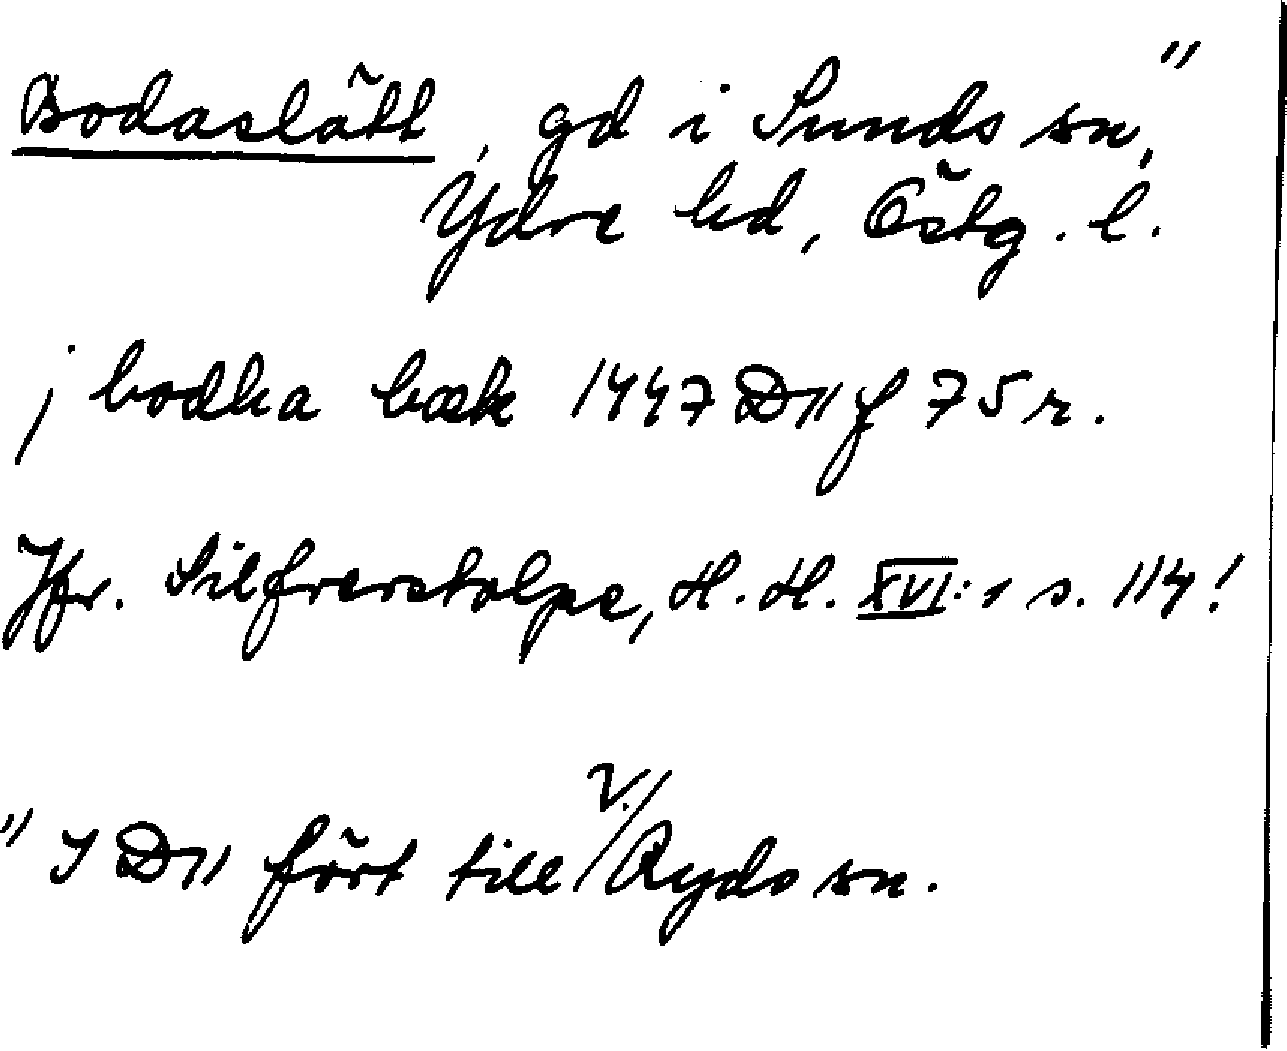 Bodaslätt, gd i Sunds sn,"
Ydre hd, Östg. l.
j bodha bæk 1447 D11 f 75 r.
Jfr. Silfverstolpe, H. H. XVI:1 s. 114!
" I D11 fört till V. Ryds sn.